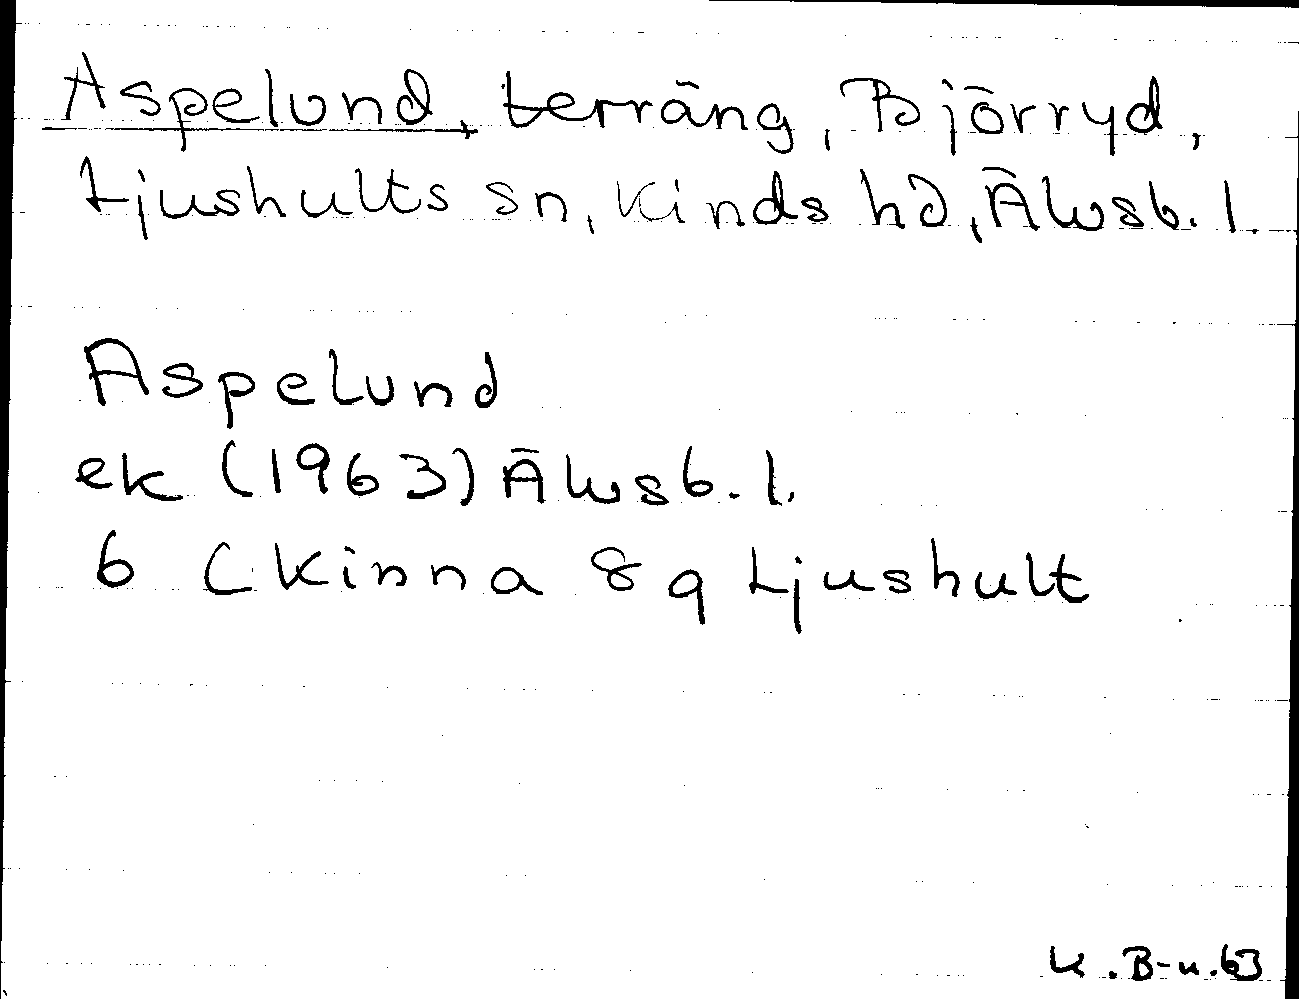 Aspelund, terräng, Björryd,
Ljushults sn, Kinds hd, Älvsb. l.
Aspelund
ek (1963) Älvsb. l.
6 (Kinna 8 q Ljushult
K. B-n. 63